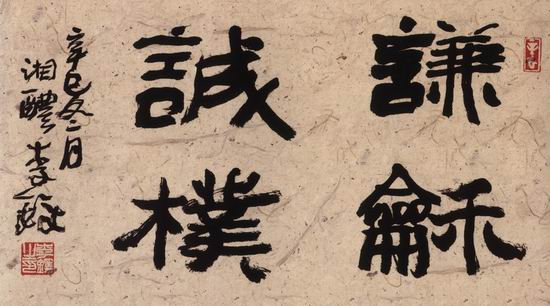 謙龢
誠樸
辛巳冬月
湘醴李鐸